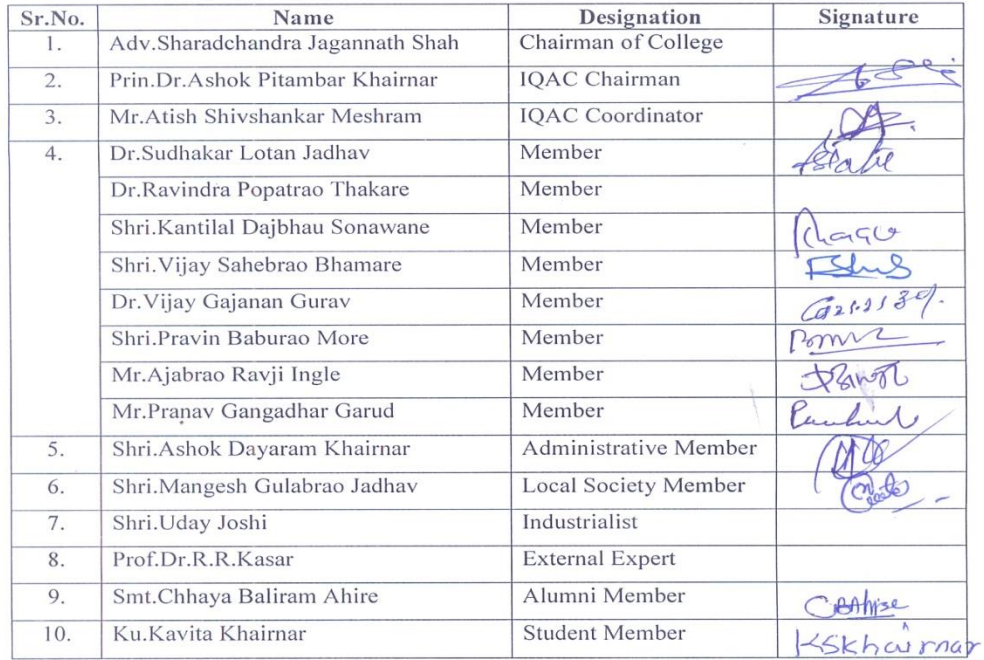 Sr.No. Name Designation Signature
1. Adv.Sharadchandra Jagannath Shah Chairman of College
2. Prin.Dr.Ashok Pitambar Khairnar IQAC Chairman
3. Mr.Atish Shivshankar Meshram IQAC Coordinator
4. Dr.Sudhakar Lotan Jadhav Member
Dr.Ravindra Popatrao Thakare Member
Shri.Kantilal Dajbhau Sonawane Member
Shri.Vijay Sahebrao Bhamare Member
Dr.Vijay Gajanan Gurav Member
Shri.Pravin Baburao More Member
Mr.Ajabrao Ravji Ingle Member
Mr.Pranav Gangadhar Garud Member
5. Shri.Ashok Dayaram Khairnar Administrative Member
6. Shri.Mangesh Gulabrao Jadhav Local Society Member
7. Shri.Uday Joshi Industrialist
8. Prof.Dr.R.R.Kasar External Expert
9. Smt.Chhaya Baliram Ahire Alumni Member CBAhire
10. Ku.Kavita Khairnar Student Member KSKhairnar